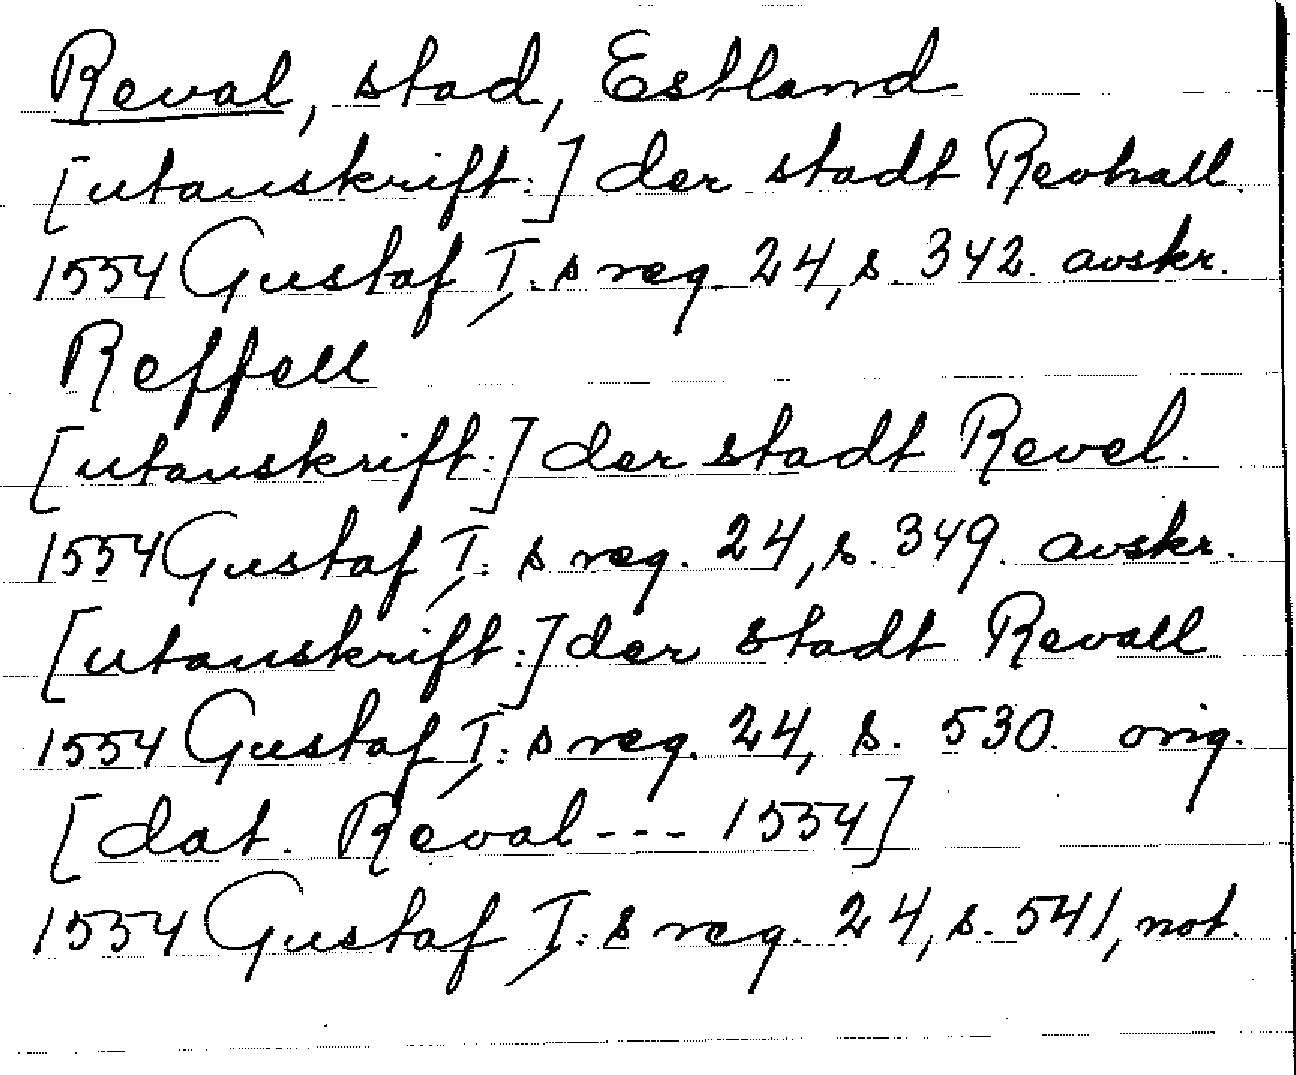 Reval, stad, Estland
[utanskrift:] der stadt Revhall.
1554 Gustaf I:s reg. 24, s. 342. avskr.
Reffell
[utanskrift:] der stadt Revel.
1554 Gustaf I:s reg. 24, s. 349. avskr.
[utanskrift:] der stadt Revall
1554 Gustaf I:s reg. 24, s. 530. orig.
[dat. Reval --- 1554]
1554 Gustaf I:s reg. 24, s. 541, not.